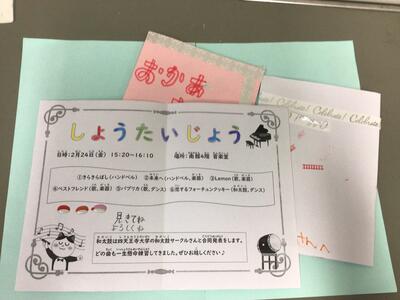 おかあ
Celebrate! Celebrate! Celebrate
さんへ
しょうたいじょう
日時：2月24日（金） 15:20～16:10 場所：南館4階 音楽室
①きらきらぼし（ハンドベル） ②未来へ（ハンドベル、楽器） ③Lemon（歌、楽器）
④ベストフレンド（歌、楽器） ⑤パプリカ（歌、ダンス） ⑥恋するフォーチュンクッキー（和太鼓、ダンス）
見きてね
ようしくね
和太鼓は四天王寺大学の和太鼓サークルさんと合同発表をします。
どの曲も一生懸命練習してきました。ぜひお越しください♪